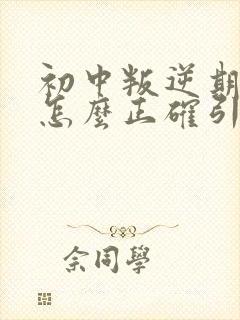 初中叛逆期
怎麼正確引
佘同學